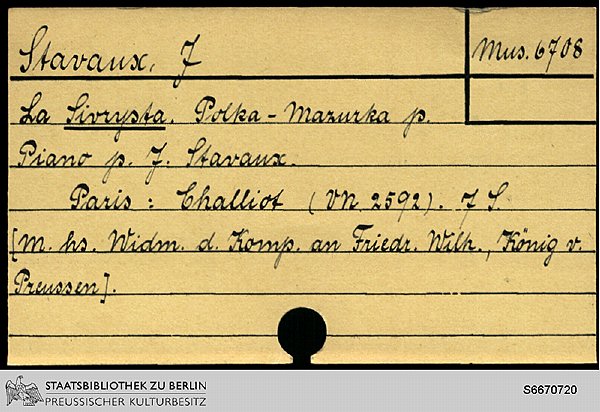 Stavaux, J
Mus. 6708
La Sivrysta. Polka-Mazurka p.
Piano p. J. Stavaux.
Paris: Challiot (VN 2592). 7 S.
[M. hs. Widm. d. Komp. an Friedr. Wilh., König v.
Preussen].
STAATSBIBLIOTHEK ZU BERLIN
PREUSSISCHER KULTURBESITZ
S6670720